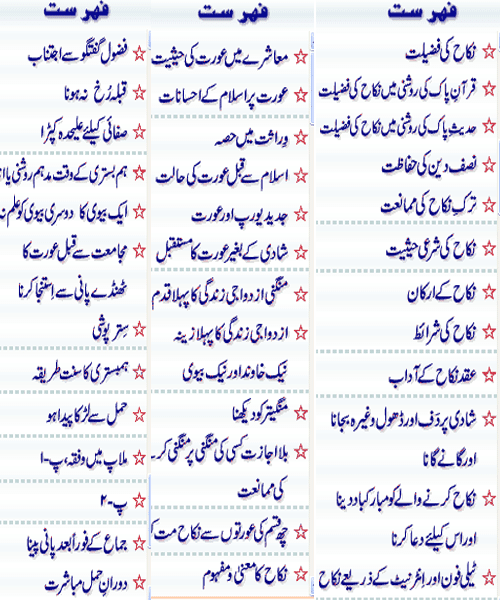 فہرست
نکاح کی فضیلت
قرآنِ پاک کی روشنی میں نکاح کی فضیلت
حدیثِ پاک کی روشنی میں نکاح کی فضیلت
نصف دین کی حفاظت
ترکِ نکاح کی ممانعت
نکاح کی شرعی حیثیت
نکاح کے ارکان
نکاح کی شرائط
عقدِ نکاح کے آداب
شادی پر دَف اور ڈھول وغیرہ بجانا
اور گانے گانا
نکاح کرنے والے کو مبارکباد دینا
اور اس کیلئے دعا کرنا
ٹیلی فون اور انٹرنیٹ کے ذریعے نکاح
فہرست
معاشرے میں عورت کی حیثیت
عورت پر اسلام کے احسانات
وراثت میں حصہ
اسلام سے قبل عورت کی حالت
جدید یورپ اور عورت
شادی کے بغیر عورت کا مستقبل
منگنی ازدواجی زندگی کا پہلا قدم
ازدواجی زندگی کا پہلا زینہ
نیک خاوند اور نیک بیوی
منگیتر کو دیکھنا
بلا اجازت کسی کی منگنی پر منگنی کر
کی ممانعت
چھ قسم کی عورتوں سے نکاح مت ک
نکاح کا معنیٰ و مفہوم
فہرست
فضول گفتگو سے اجتناب
قبلہ رُخ نہ ہونا
صفائی کیلئے علیحدہ کپڑا
ہم بستری کے وقت مدہم روشنی یا از
ایک بیوی کا دوسری بیوی کو علم نہ
مجامعت سے قبل عورت کا
ٹھنڈے پانی سے اِستنجا کرنا
سِتر پوشی
ہمبستری کا سنت طریقہ
حمل سے لڑکا پیدا ہو
ملاپ میں وقفہ، پ-۱
پ-۲
جماع کے فوراً بعد پانی پینا
دورانِ حمل مباشرت